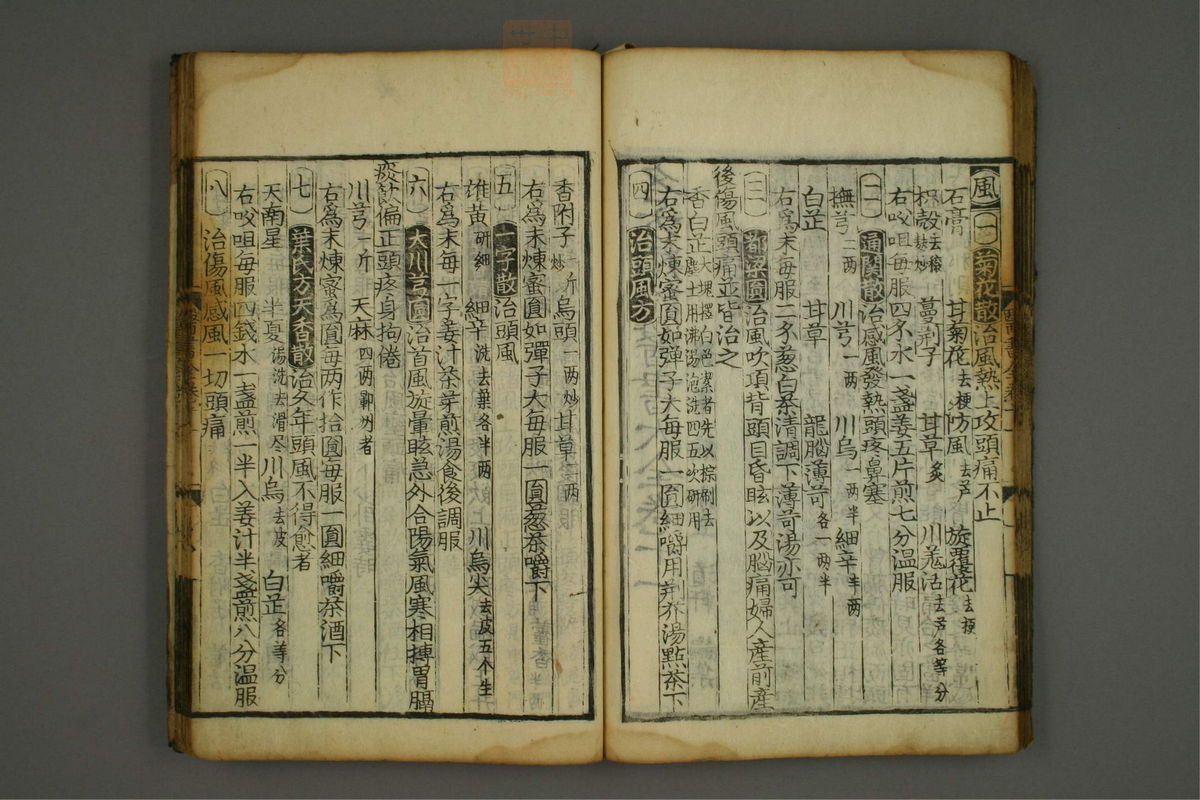 風 (一)菊花散治風熱上攻頭痛不止
石膏 甘菊花去梗防風去芦 旋覆花去梗
枳殼去穰麸炒 蔓荆子 甘草炙 川羌活去芦各等分
右㕮咀每服四戔水一盞姜五片煎七分温服
(二)通關散治感風發熱頭疼鼻塞
撫芎二两 川芎一两 川烏一两半細辛半两
白芷 甘草 龍腦薄苛各一两半
右爲末每服二戔葱白茶清調下薄苛湯亦可
(三)都梁圓治風吹項背頭目昏眩以及腦痛婦人産前産
後傷風頭痛並皆治之
香白芷大塊擇白色潔者先以棕刷去塵土用沸湯泡洗四五次研用
右爲末煉蜜圓如弹子大每服一圓細嚼用荆芥湯點茶下
(四)治頭風方
香附子炒一斤烏頭一两炒甘草二两
右爲末煉蜜圓如彈子大每服一圓葱茶嚼下
(五)一字散治頭風
雄黄研細 細辛洗去葉各半两 川烏尖去皮五个生
右爲末每一字姜汁茶芽煎湯食後調服
(六)大川芎圓治首風旋暈眩急外合陽氣風寒相搏胃膈
痰飲偏正頭疼身拘倦
川芎一斤 天麻四两鄆州者
右爲末煉蜜爲圓每两作拾圓每服一圓細嚼茶酒下
(七)葉氏方天香散治久年頭風不得愈者
天南星 半夏湯洗去滑尽川烏去皮 白芷各等分
右㕮咀每服四錢水一盞煎一半入姜汁半盞煎八分温服
(八)治傷風感風一切頭痛